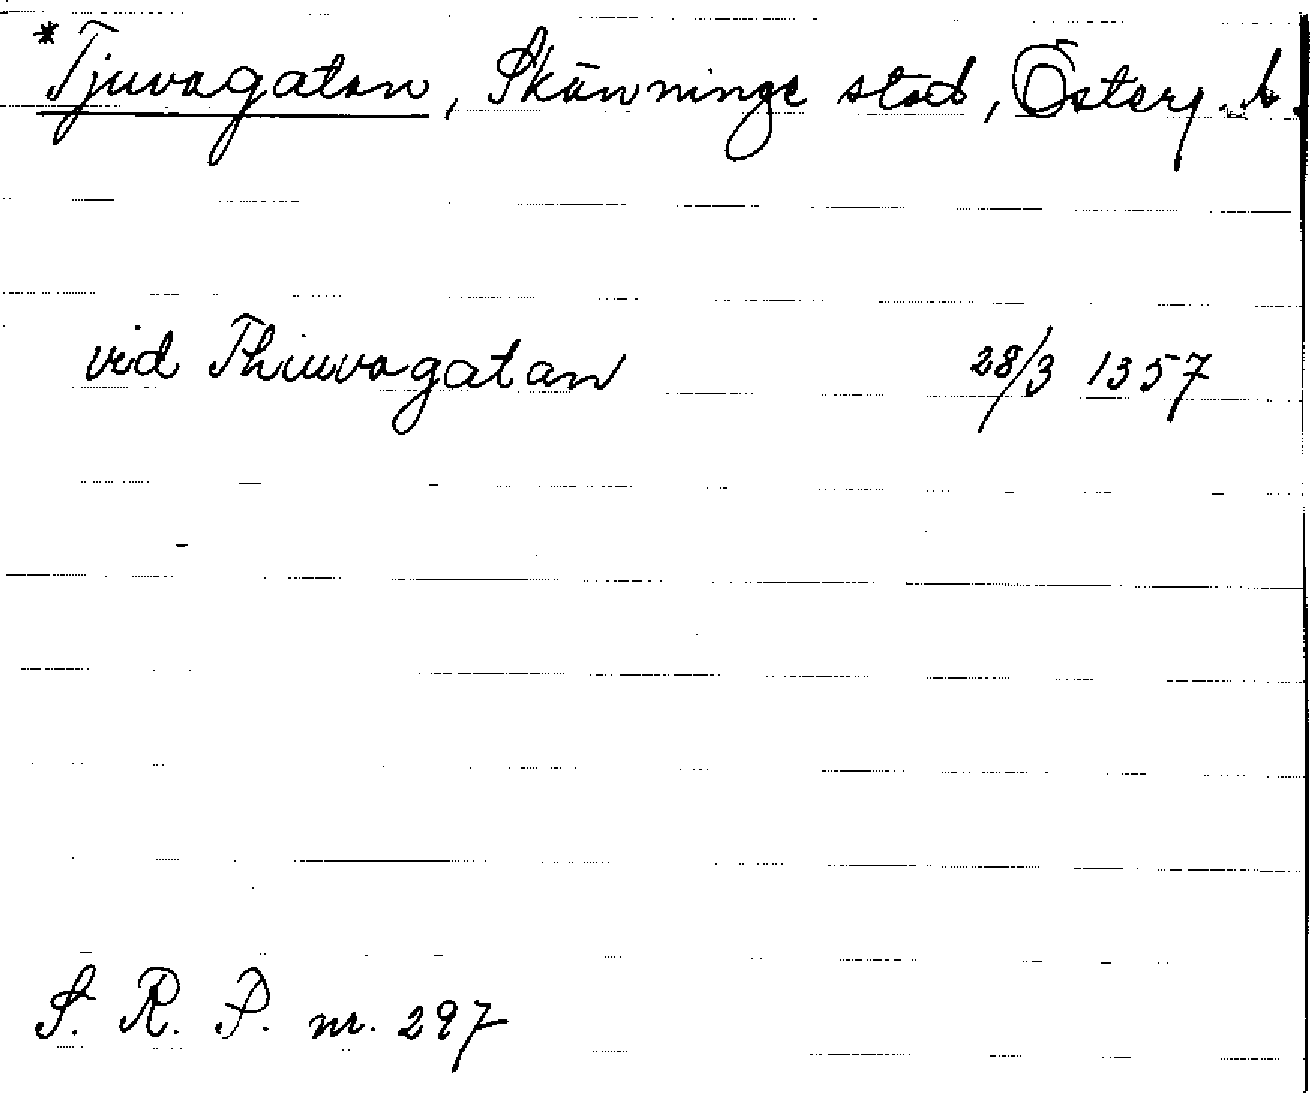 *Tjuvagatan, Skänninge stad, Österg. l.
vid Thiuvagatan 28/3 1357
S. R. P. nr. 297